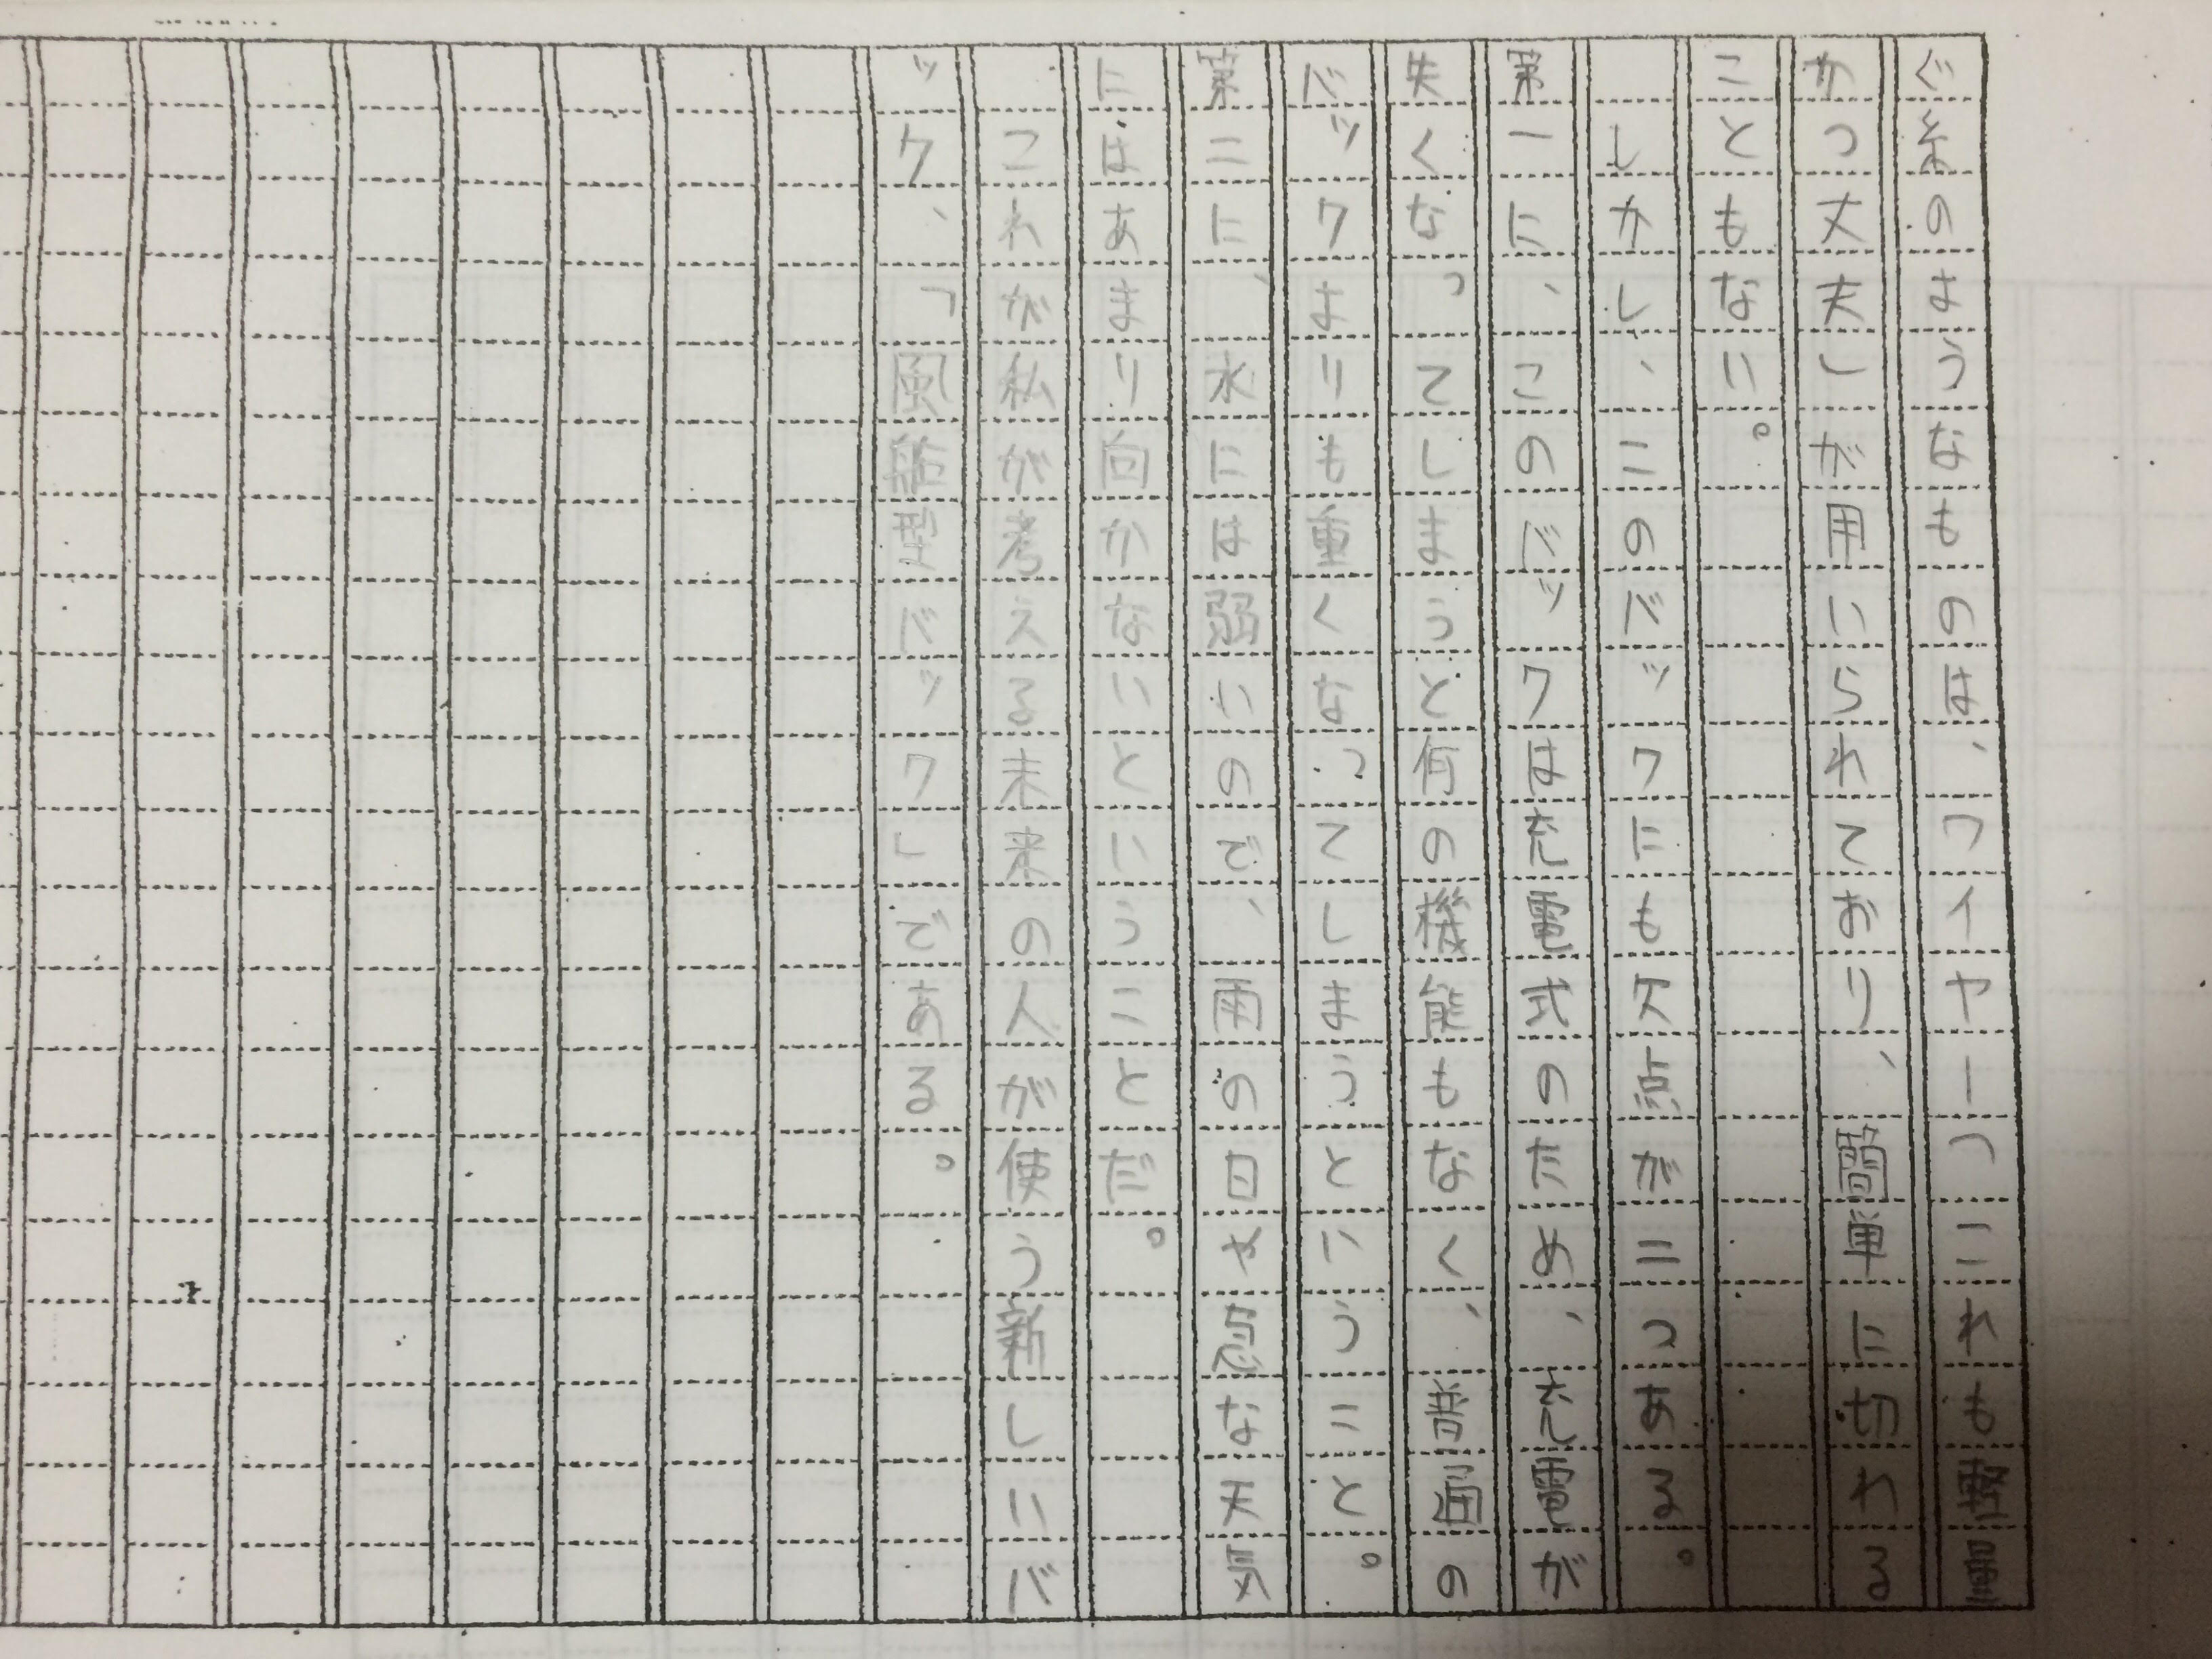 ぐ糸のようなものは、ワイヤー（これも軽量
かつ丈夫）が用いられており、簡単に切れる
こともない。
しかし、このバックにも欠点が二つある。
第一に、このバックは充電式のため、充電が
失くなってしまうと何の機能もなく、普通の
バックよりも重くなってしまうということ。
第二に、水には弱いので、雨の日や急な天気
にはあまり向かないということだ。
これが私が考える未来の人が使う新しいバ
ック、「風船型バック」である。